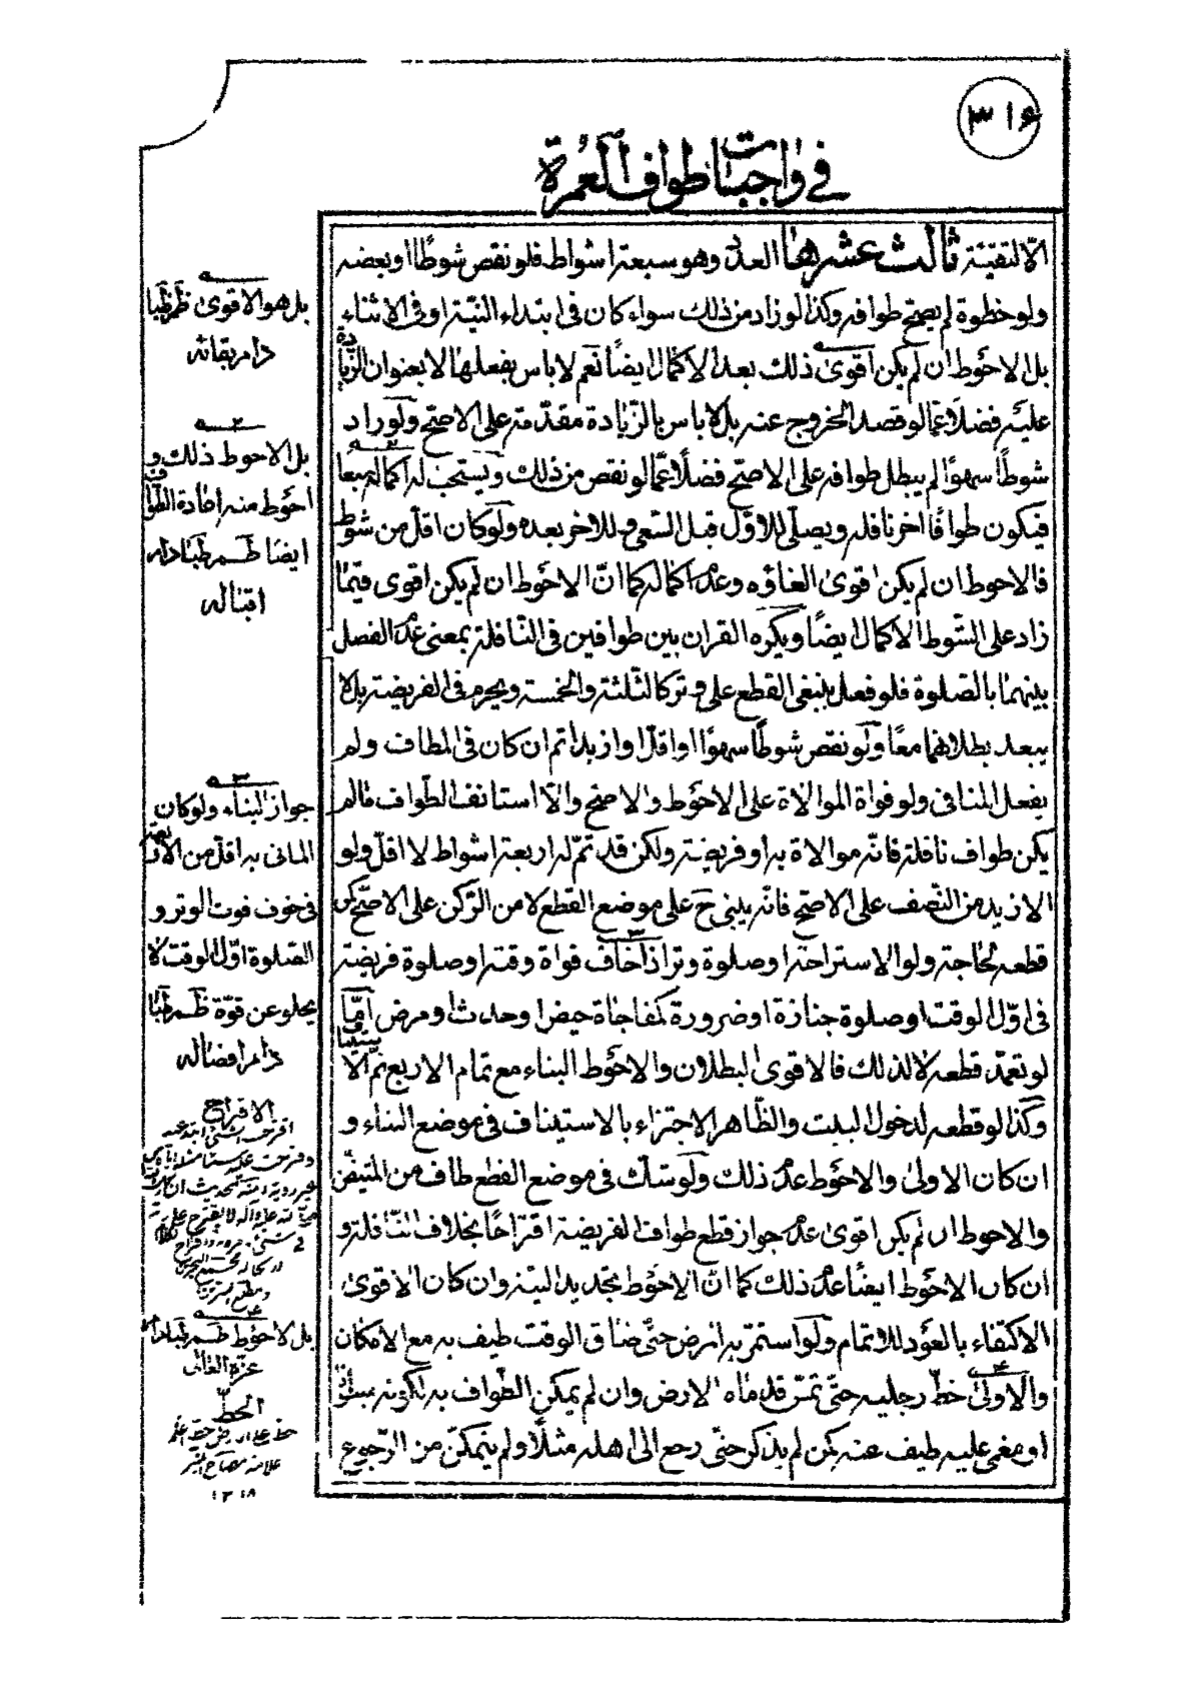 ٣١۶
في واجبات طواف العمرة
الّا لتقيّة ثالث عشرها العدد وهو سبعة اشواط فلو نقص شوطًا او بعضه
ولو خطوة لم يصح طوافه وكذا لو زاد من ذلك سواء كان في ابتداء النيّة او في الاثناء
بل الاحوط ان لم يكن اقوى ذلك بعد الاكمال ايضًا نعم لا باس بفعلها لا بعنوان الزّيادة
عليه فضلًا عمّا لو قصد الخروج عنه بل لا باس بالزّيادة مقدّمة على الاصحّ ولو زاد
شوطًا سهوًا لم يبطل طوافه على الاصحّ فضلًا عمّا لو نقص من ذلك ويستحبّ له اكماله سبعا
فيكون طوافًا اخر نافلة ويصلّي للاوّل قبل السّعي وللاخر بعده ولو كان اقلّ من شوط
فالاحوط ان لم يكن اقوى الغاؤه وعدم اكماله كما انّ الاحوط ان لم يكن اقوى فيما
زاد على الشّوط الاكمال ايضًا ويكره القران بين طوافين في النّافلة بمعنى عدم الفصل
بينهما بالصّلوة فلو فعل ينبغي القطع على وتر كالثّلثة والخمسة ويحرم في الفريضة بل لا
يبعد بطلانهما معًا ولو نقص شوطًا سهوًا او اقلّ او ازيد اتمّ ان كان في المطاف ولم
يفعل المنافي ولو فواة الموالاة على الاحوط والاصحّ والّا استانف الطّواف مالم
يكن طواف نافلة فانّه موالاة به او فريضة ولكن قد تمّ له اربعة اشواط لا اقلّ ولو
الازيد من النّصف على الاصحّ فانّه يبني ح على موضع القطع لا من الرّكن على الاصحّ كمن
قطعه لحاجة ولو الاستراحة او صلوة وتر اذا خاف فواة وقته او صلوة فريضة
في اوّل الوقت او صلوة جنازة او ضرورة كمفاجاة حيض او حدث او مرض امّا
لو تعمّد قطعه لا لذلك فالاقوى البطلان والاحوط البناء مع تمام الاربع ثمّ الاستيناف
وكذا لو قطعه لدخول البيت والظّاهر الاجتزاء بالاستيناف في موضع البناء و
ان كان الاولى والاحوط عدم ذلك ولو شكّ في موضع القطع طاف من المتيقّن
والاحوط ان لم يكن اقوى عدم جواز قطع طواف الفريضة اقتراحًا بخلاف النّافلة و
ان كان الاحوط ايضًا عدم ذلك كما انّ الاحوط تجديد النية وان كان الاقوى
الاكتفاء بالعود للاتمام ولو استمرّ به المرض حتّى ضاق الوقت طيف به مع الامكان
والاولى خطّ رجليه حتّى تمسّ قدماه الارض وان لم يمكن الطّواف به لكونه مبطونًا
او مغمى عليه طيف عنه كمن لم يذكر حتّى رجع الى اهله مثلًا ولم يتمكّن من الرّجوع
بل هو الاقوى ظم طبا
دام بقائه
بل الاحوط ذلك و
احوط منه اعادة الطواف
ايضا ظم طبا دام
اقباله
جواز البناء ولو كان
الماتى به اقلّ من الاربعة
في خوف فوت الوتر و
الصّلوة اوّل الوقت لا
يخلو عن قوّة ظم طبا
دام افضاله
الاقراح
بل الاحوط ظم طبا دام
عزّه العالى
الخطّ
١٢١٨